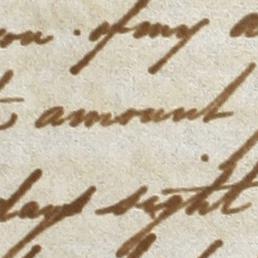 of my
amount
days sight